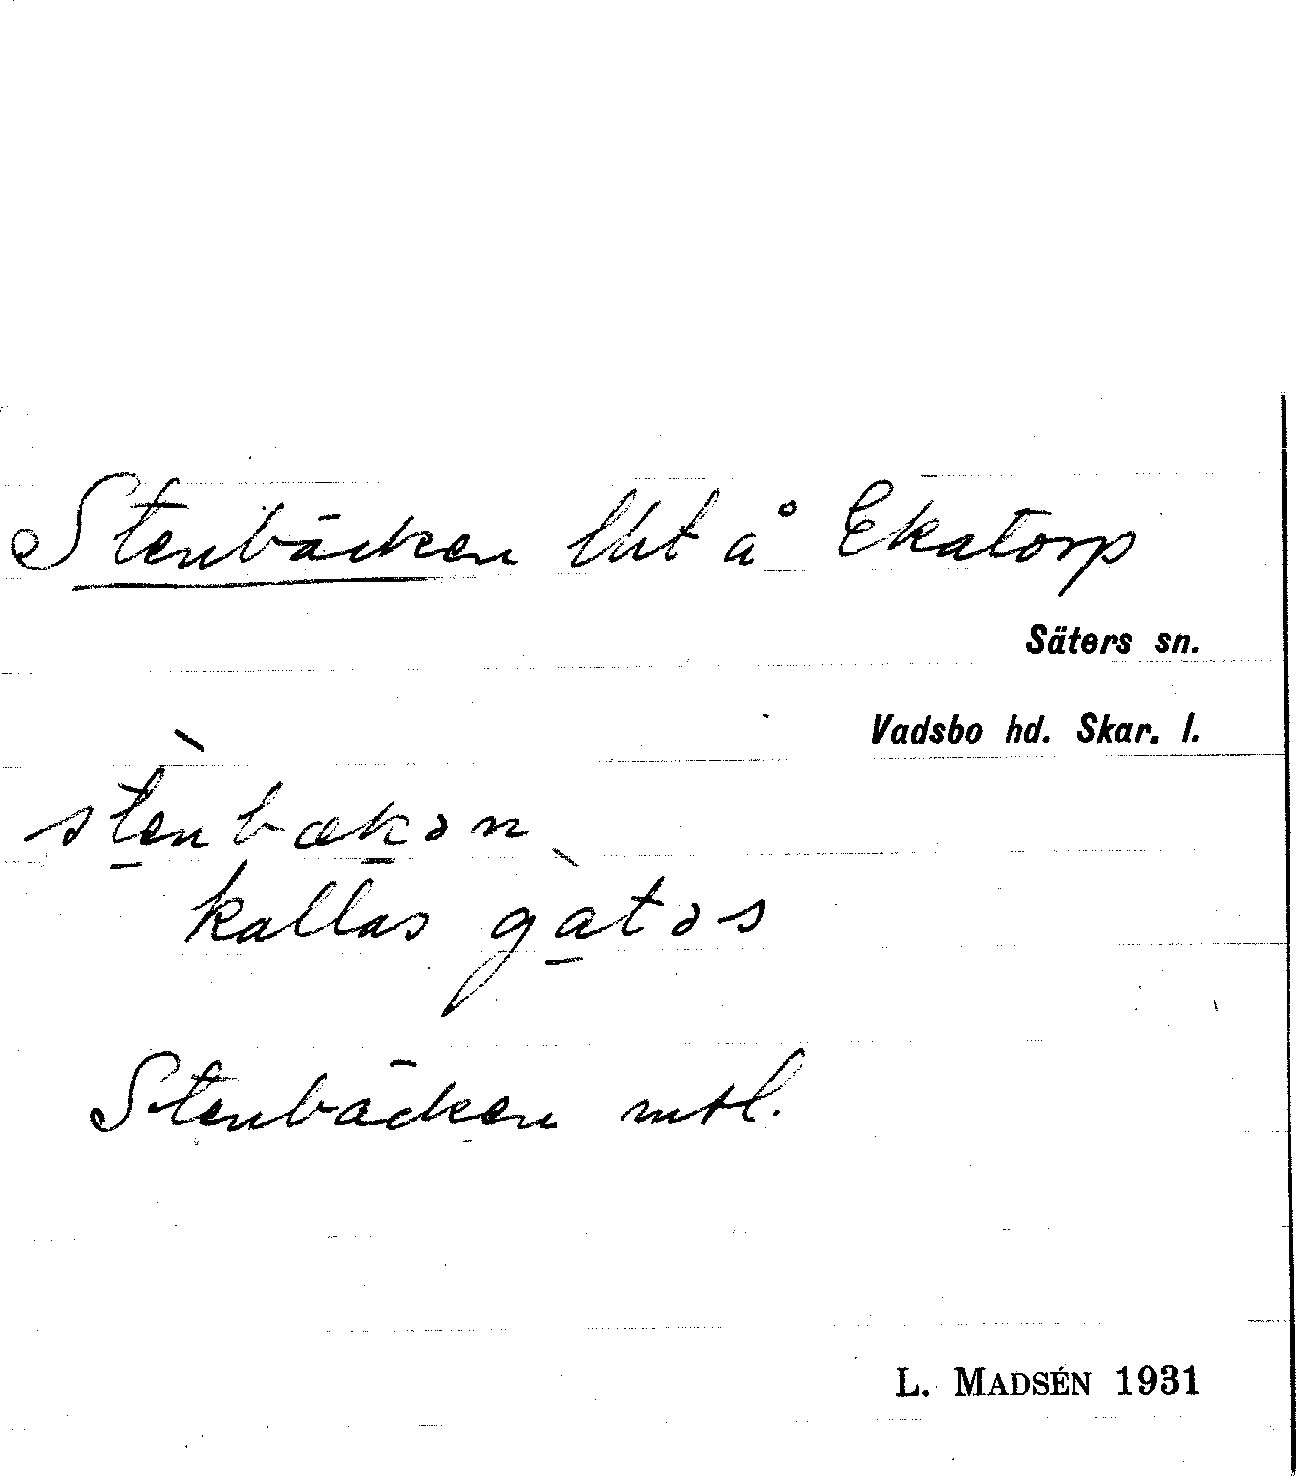 Stenbäcken lht å Ekatorp
Säters sn.
Vadsbo hd. Skar. l.
stènbækən
kallas gàtəs
Stenbäcken mtl.
L. MADSÉN 1931